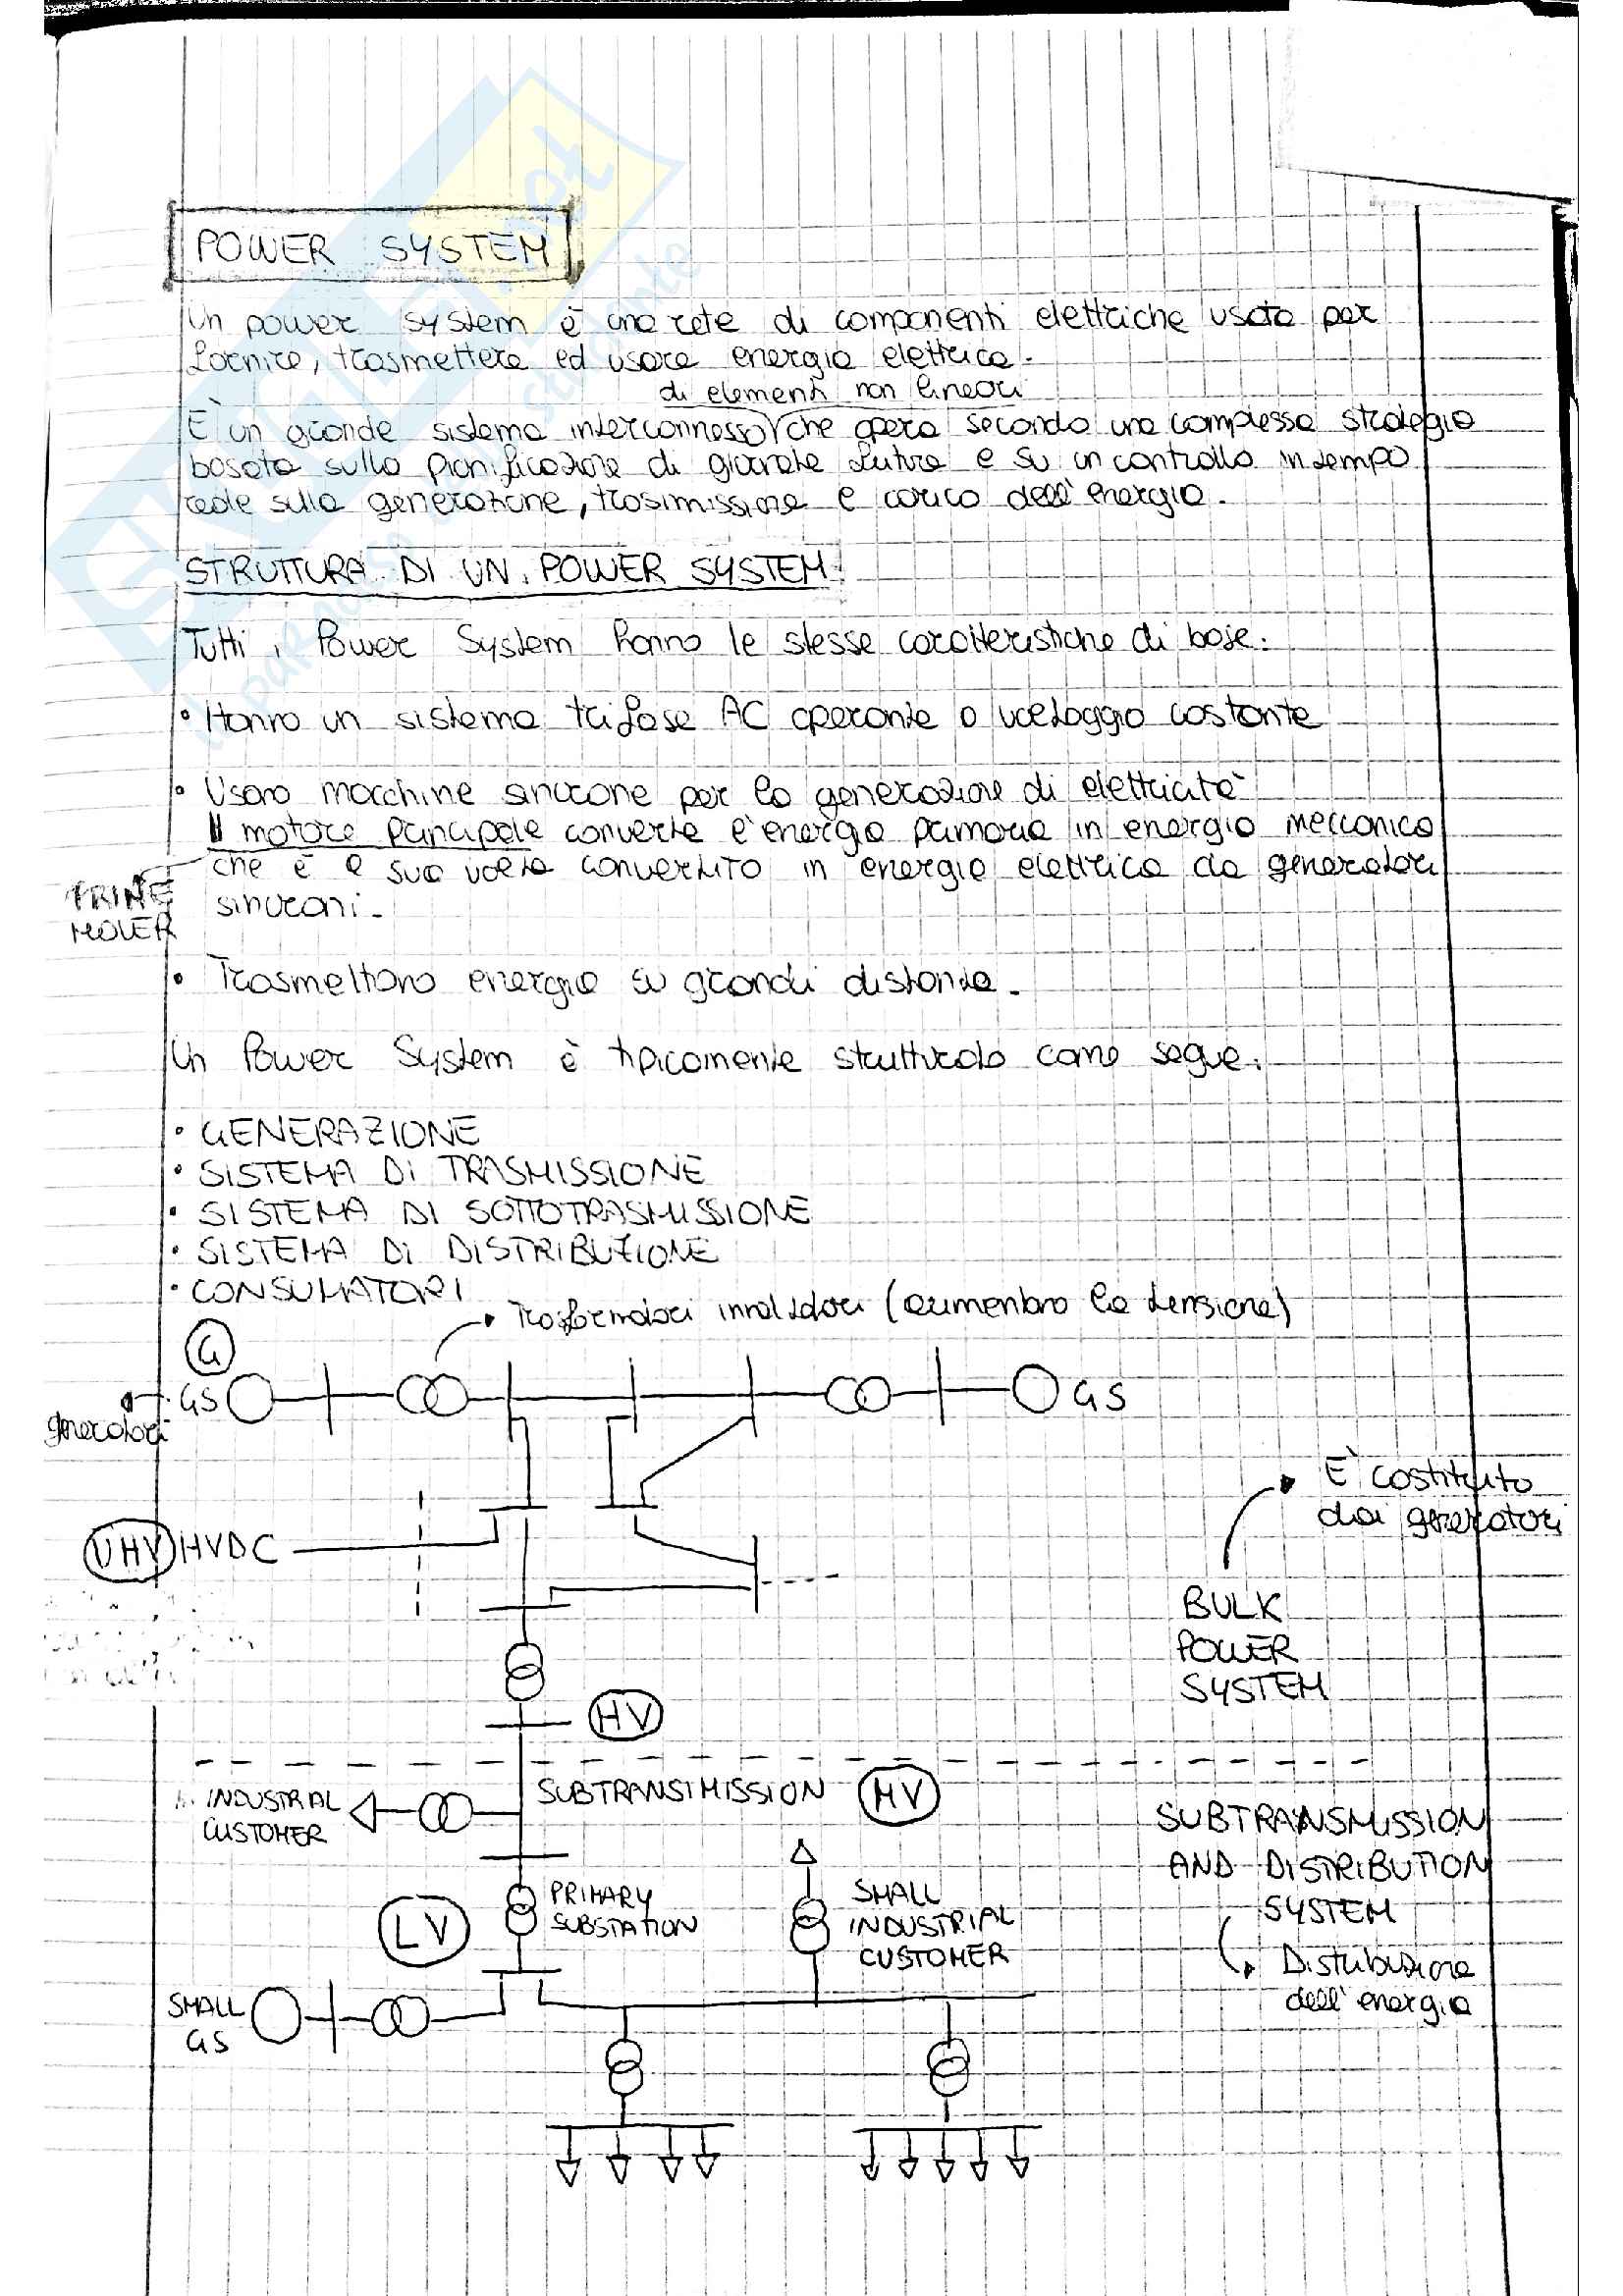 POWER SYSTEM
Un power system è una rete di componenti elettriche usata per
fornire, trasmettere ed usare energia elettrica.
di elementi non lineari
È un grande sistema interconnesso che opera secondo una complessa strategia
basata sulla pianificazione di giornate future e su un controllo in tempo
reale sulla generazione, trasimissione e carico dell'energia.
STRUTTURA DI UN POWER SYSTEM
Tutti i Power System hanno le stesse caratteristiche di base:
• Hanno un sistema trifase AC operante a voltaggio costante
• Usano macchine sincrone per la generazione di elettricità
Il motore principale converte l'energia primaria in energia meccanica
che è a sua volta convertito in energia elettrica da generatori
PRIME
MOVER
sincroni.
• Trasmettono energia su grandi distanze.
Un Power System è tipicamente strutturato come segue:
• GENERAZIONE
• SISTEMA DI TRASMISSIONE
• SISTEMA DI SOTTOTRASMISSIONE
• SISTEMA DI DISTRIBUZIONE
• CONSUMATORI
Trasformatori innalzatori (aumentano la tensione)
G
GS
GS
generatori
È costituito
dai generatori
UHV HVDC
BULK
POWER
SYSTEM
HV
INDUSTRIAL
CUSTOMER
SUBTRANSIMISSION MV
SUBTRANSMISSION
AND DISTRIBUTION
SYSTEM
LV
PRIMARY
SUBSTATION
SMALL
INDUSTRIAL
CUSTOMER
Distribuzione
dell'energia
SMALL
GS